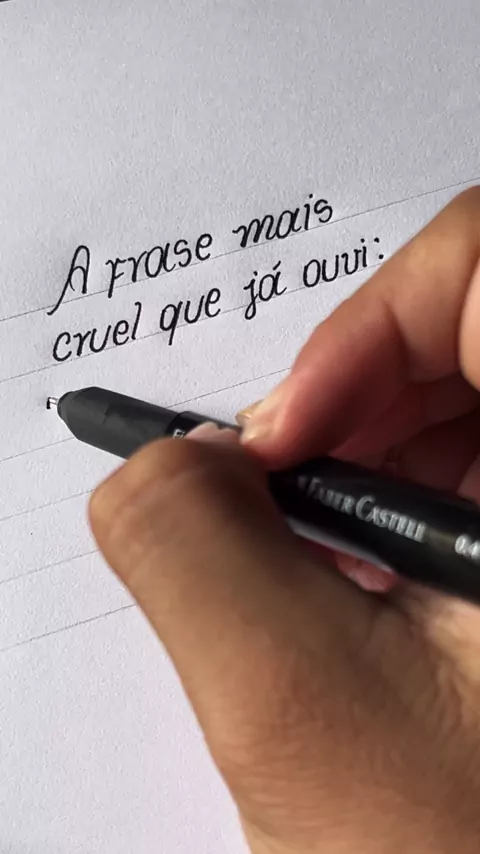 A frase mais
cruel que já ouvi:
FABER CASTELL 0.4